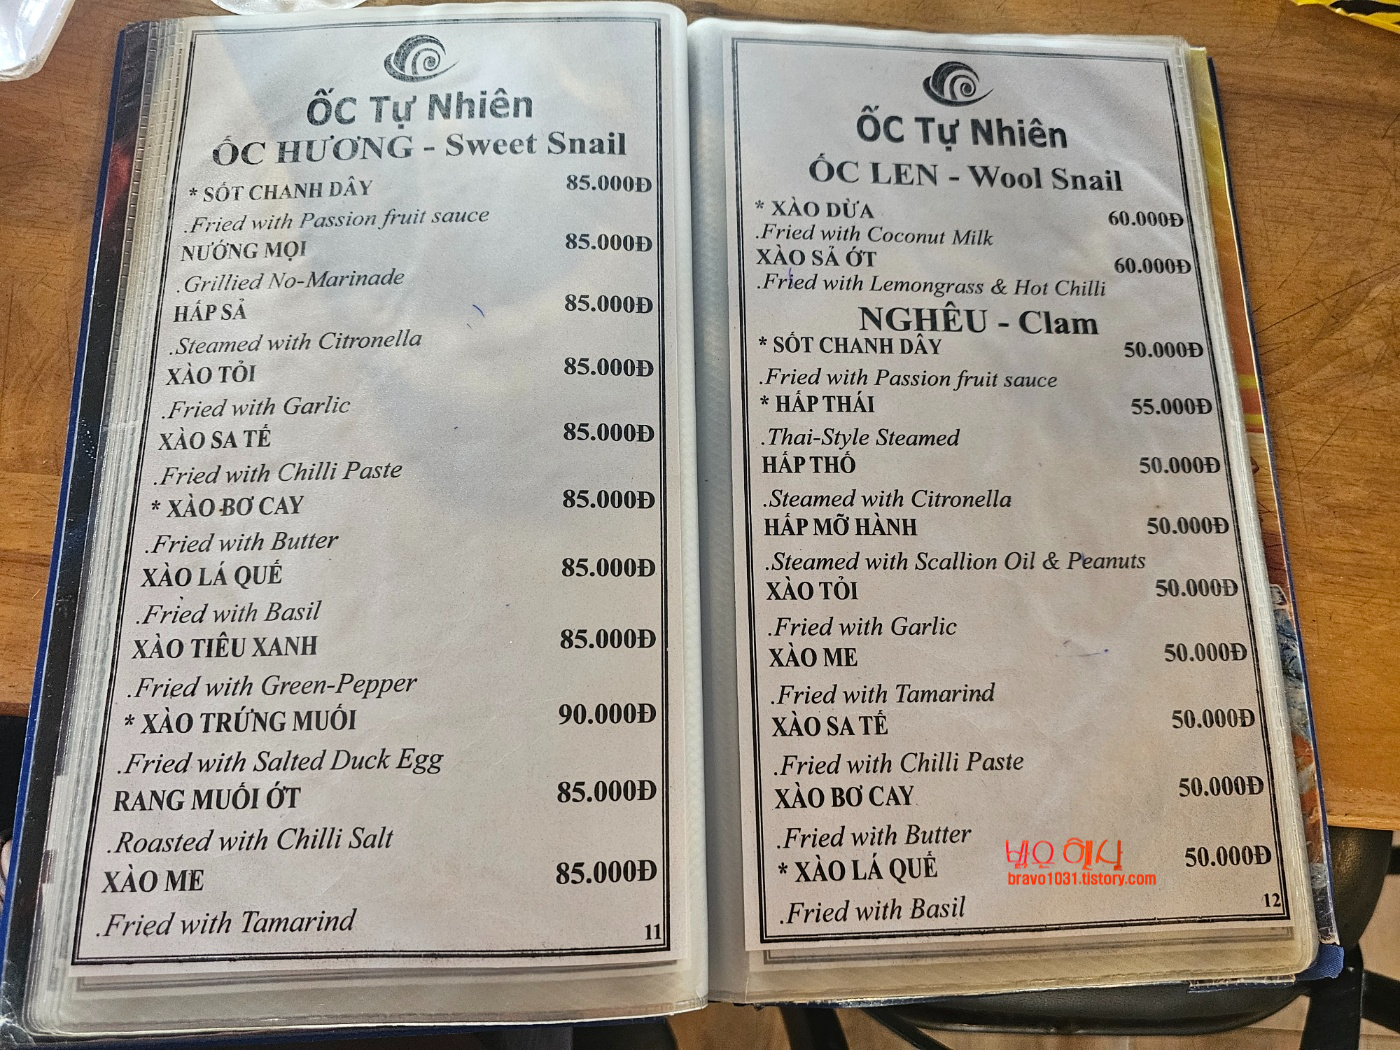 ỐC Tự Nhiên
ỐC HƯƠNG - Sweet Snail
* SỐT CHANH DÂY 85.000Đ
.Fried with Passion fruit sauce
NƯỚNG MỌI 85.000Đ
.Grillied No-Marinade
HẤP SẢ 85.000Đ
.Steamed with Citronella
XÀO TỎI 85.000Đ
.Fried with Garlic
XÀO SA TẾ 85.000Đ
.Fried with Chilli Paste
* XÀO BƠ CAY 85.000Đ
.Fried with Butter
XÀO LÁ QUẾ 85.000Đ
.Fried with Basil
XÀO TIÊU XANH 85.000Đ
.Fried with Green-Pepper
* XÀO TRỨNG MUỐI 90.000Đ
.Fried with Salted Duck Egg
RANG MUỐI ỚT 85.000Đ
.Roasted with Chilli Salt
XÀO ME 85.000Đ
.Fried with Tamarind
11
ỐC Tự Nhiên
ỐC LEN - Wool Snail
* XÀO DỪA 60.000Đ
.Fried with Coconut Milk
XÀO SẢ ỚT 60.000Đ
.Fried with Lemongrass & Hot Chilli
NGHÊU - Clam
* SỐT CHANH DÂY 50.000Đ
.Fried with Passion fruit sauce
* HẤP THÁI 55.000Đ
.Thai-Style Steamed
HẤP THỐ 50.000Đ
.Steamed with Citronella
HẤP MỠ HÀNH 50.000Đ
.Steamed with Scallion Oil & Peanuts
XÀO TỎI 50.000Đ
.Fried with Garlic
XÀO ME 50.000Đ
.Fried with Tamarind
XÀO SA TẾ 50.000Đ
.Fried with Chilli Paste
XÀO BƠ CAY 50.000Đ
.Fried with Butter
* XÀO LÁ QUẾ 50.000Đ
.Fried with Basil
12
bravo1031.tistory.com